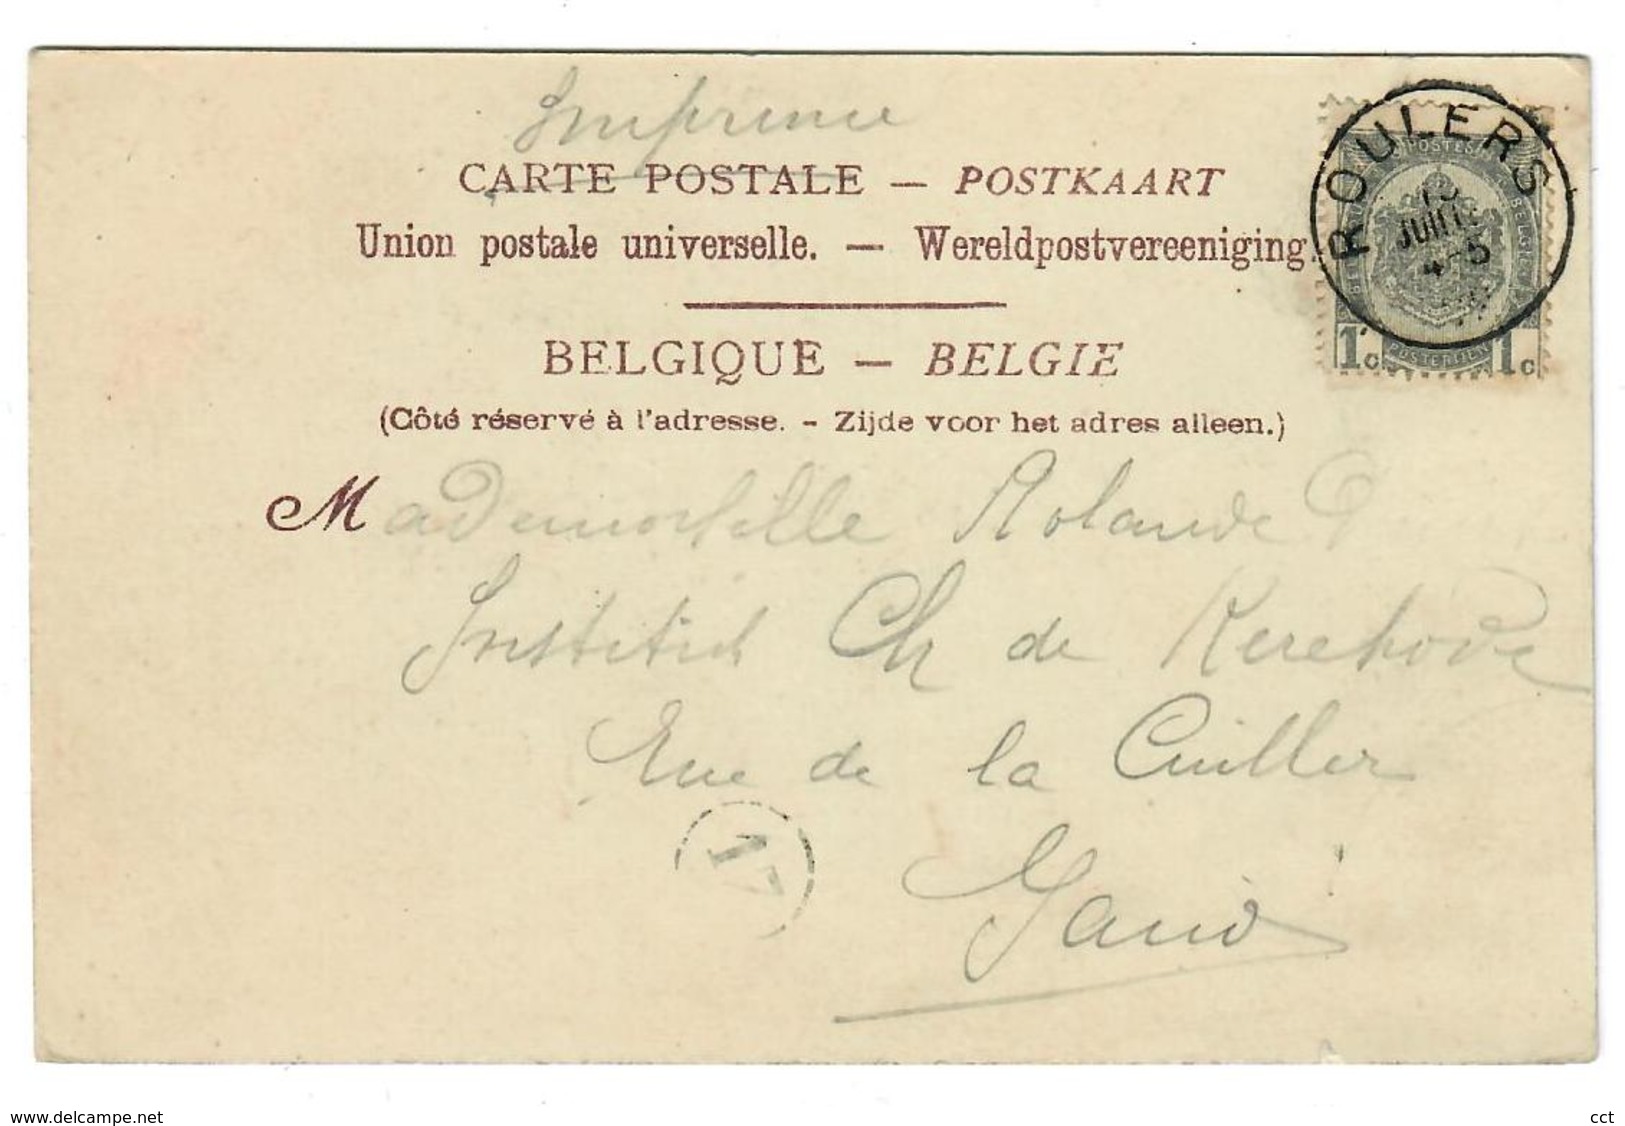 Imprimé
CARTE POSTALE — POSTKAART
Union postale universelle. — Wereldpostvereeniging.
BELGIQUE — BELGIE
(Côté réservé à l'adresse. - Zijde voor het adres alleen.)
Mademoiselle Rolande
Institut Ch de Kerchove
Rue de la Cuiller
Gand
ROULERS
JUIL
4-5
POSTES
1c POSTERIJEN 1c
www.delcampe.net
cct